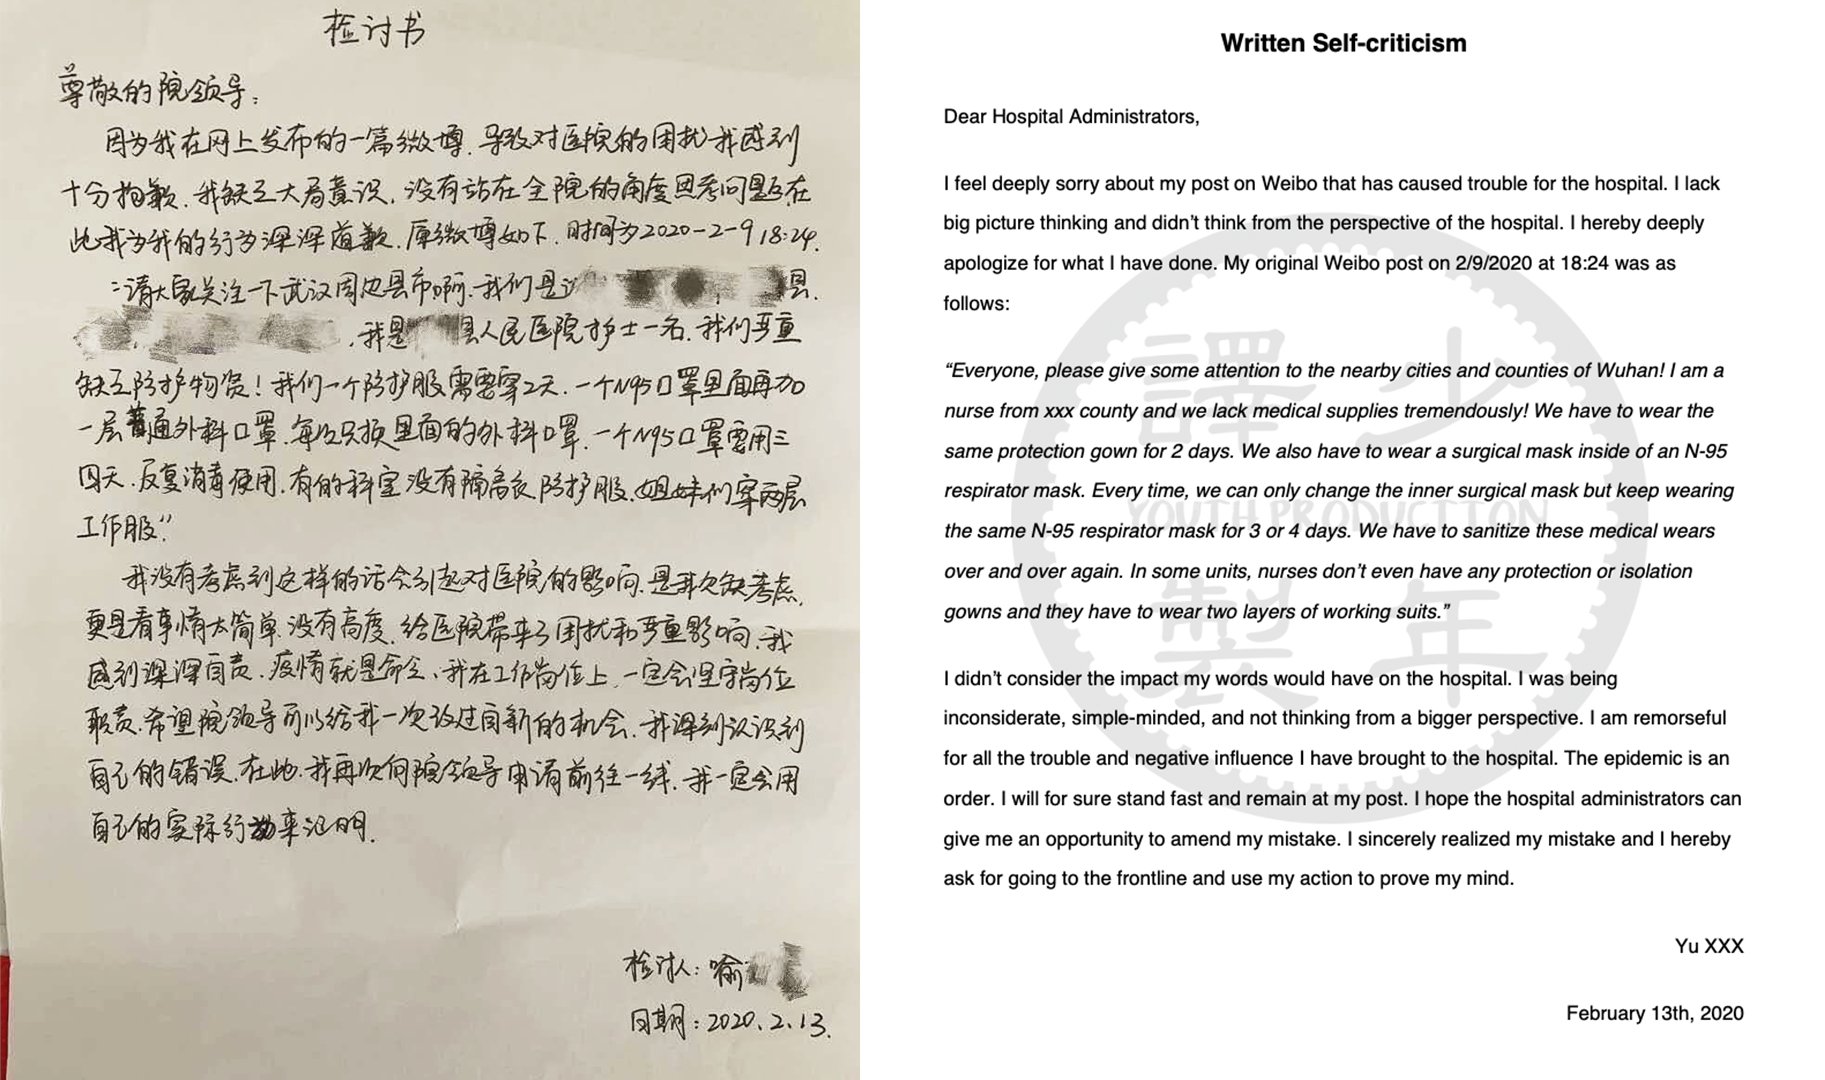 检讨书
尊敬的院领导：
因为我在网上发布的一篇微博，导致对医院的困扰我感到
十分抱歉，我缺乏大局意识，没有站在全院的角度思考问题，在
此我为我的行为深深道歉，原微博如下，时间为2020-2-9 18:24.
“请大家关注一下武汉周边县市啊，我们是 县，
，我是 县人民医院护士一名，我们严重
缺乏防护物资！我们一个防护服需要穿2天，一个N95口罩里面再加
一层普通外科口罩，每次只换里面的外科口罩，一个N95口罩要用三
四天，反复消毒使用，有的科室没有隔离衣防护服，姐妹们穿两层
工作服”
我没有考虑到这样的话会引起对医院的影响，是我欠缺考虑，
更是看事情太简单，没有高度，给医院带来了困扰和严重影响，我
感到深深自责，疫情就是命令，我在工作岗位上，一定会坚守岗位
职责，希望院领导可以给我一次改过自新的机会，我深刻认识到
自己的错误，在此，我再次向院领导申请前往一线，我一定会用
自己的实际行动来证明.
检讨人：喻
日期：2020.2.13.
Written Self-criticism
Dear Hospital Administrators,
I feel deeply sorry about my post on Weibo that has caused trouble for the hospital. I lack
big picture thinking and didn’t think from the perspective of the hospital. I hereby deeply
apologize for what I have done. My original Weibo post on 2/9/2020 at 18:24 was as
follows:
“Everyone, please give some attention to the nearby cities and counties of Wuhan! I am a
nurse from xxx county and we lack medical supplies tremendously! We have to wear the
same protection gown for 2 days. We also have to wear a surgical mask inside of an N-95
respirator mask. Every time, we can only change the inner surgical mask but keep wearing
the same N-95 respirator mask for 3 or 4 days. We have to sanitize these medical wears
over and over again. In some units, nurses don’t even have any protection or isolation
gowns and they have to wear two layers of working suits.”
I didn’t consider the impact my words would have on the hospital. I was being
inconsiderate, simple-minded, and not thinking from a bigger perspective. I am remorseful
for all the trouble and negative influence I have brought to the hospital. The epidemic is an
order. I will for sure stand fast and remain at my post. I hope the hospital administrators can
give me an opportunity to amend my mistake. I sincerely realized my mistake and I hereby
ask for going to the frontline and use my action to prove my mind.
Yu XXX
February 13th, 2020
譯少
YOUTH PRODUCTION
製年